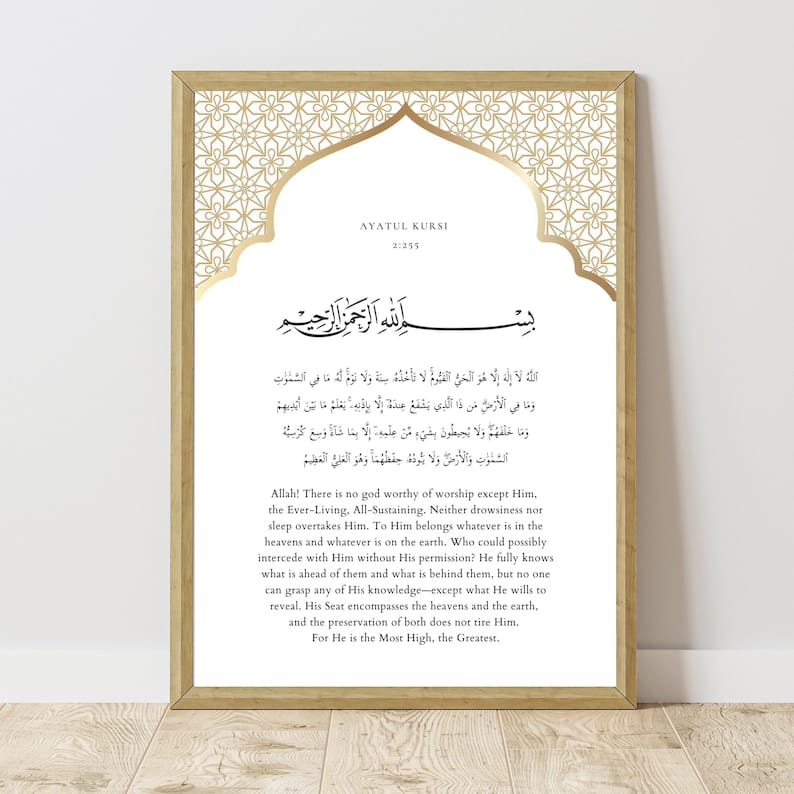 AYATUL KURSI
2:255
بِسْمِ اللَّهِ الرَّحْمَٰنِ الرَّحِيمِ
اللَّهُ لَآ إِلَٰهَ إِلَّا هُوَ ٱلْحَىُّ ٱلْقَيُّومُ ۚ لَا تَأْخُذُهُۥ سِنَةٌ وَلَا نَوْمٌ ۚ لَّهُۥ مَا فِى ٱلسَّمَٰوَٰتِ
وَمَا فِى ٱلْأَرْضِ ۗ مَن ذَا ٱلَّذِى يَشْفَعُ عِندَهُۥٓ إِلَّا بِإِذْنِهِۦ ۚ يَعْلَمُ مَا بَيْنَ أَيْدِيهِمْ
وَمَا خَلْفَهُمْ ۖ وَلَا يُحِيطُونَ بِشَىْءٍ مِّنْ عِلْمِهِۦٓ إِلَّا بِمَا شَآءَ ۚ وَسِعَ كُرْسِيُّهُ
ٱلسَّمَٰوَٰتِ وَٱلْأَرْضَ ۖ وَلَا يَـُٔودُهُۥ حِفْظُهُمَا ۚ وَهُوَ ٱلْعَلِىُّ ٱلْعَظِيمُ
Allah! There is no god worthy of worship except Him,
the Ever-Living, All-Sustaining. Neither drowsiness nor
sleep overtakes Him. To Him belongs whatever is in the
heavens and whatever is on the earth. Who could possibly
intercede with Him without His permission? He fully knows
what is ahead of them and what is behind them, but no one
can grasp any of His knowledge—except what He wills to
reveal. His Seat encompasses the heavens and the earth,
and the preservation of both does not tire Him.
For He is the Most High, the Greatest.